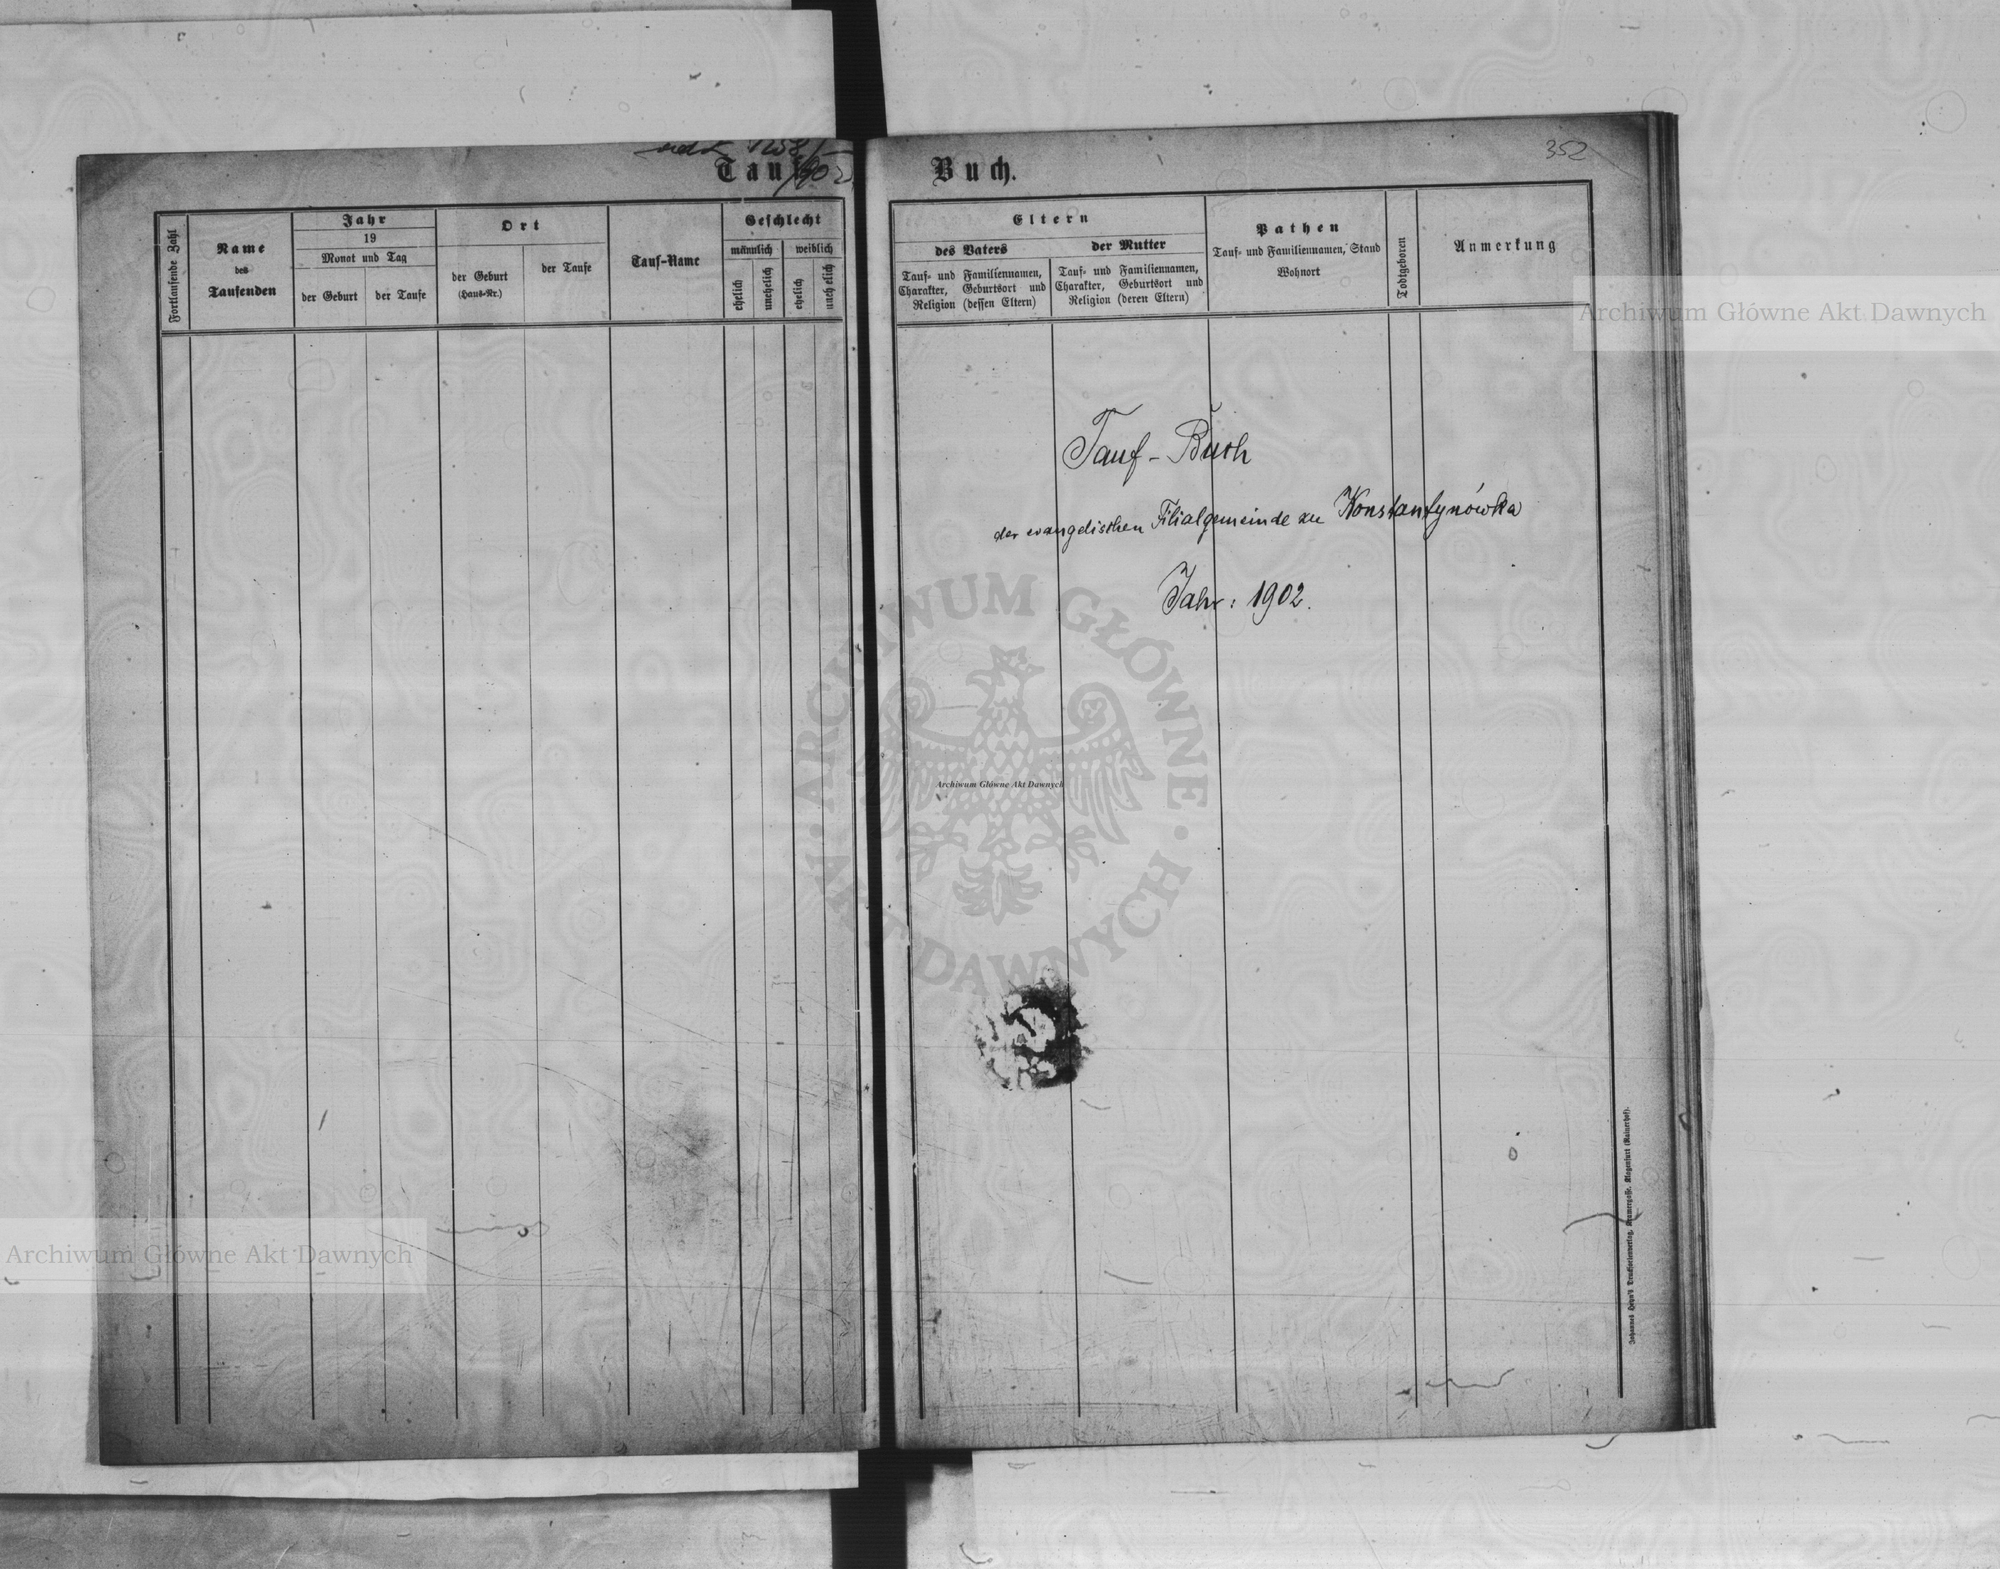 1258/
Tauf
/902
Buch.
352
Fortlaufende Zahl
Name
des
Taufenden
Jahr
19
Monat und Tag
der Geburt
der Taufe
Ort
der Geburt
(Haus-Nr.)
der Taufe
Tauf-Name
Geschlecht
männlich
weiblich
ehelich
unehelich
ehelich
unehelich
Eltern
des Vaters
der Mutter
Tauf- und Familiennamen,
Charakter, Geburtsort und
Religion (dessen Eltern)
Tauf- und Familiennamen,
Charakter, Geburtsort und
Religion (deren Eltern)
Pathen
Tauf- und Familiennamen, Stand
Wohnort
Todtgeboren
Anmerkung
Archiwum Główne Akt Dawnych
Tauf-Buch
der evangelischen Filialgemeinde zu Konstantynówka
Jahr: 1902.
ARCHIWUM GŁÓWNE AKT DAWNYCH
Archiwum Główne Akt Dawnych
Archiwum Główne Akt Dawnych
Johannes Heyn's Druksortenverlag, Klagenfurt (Rainerhof).